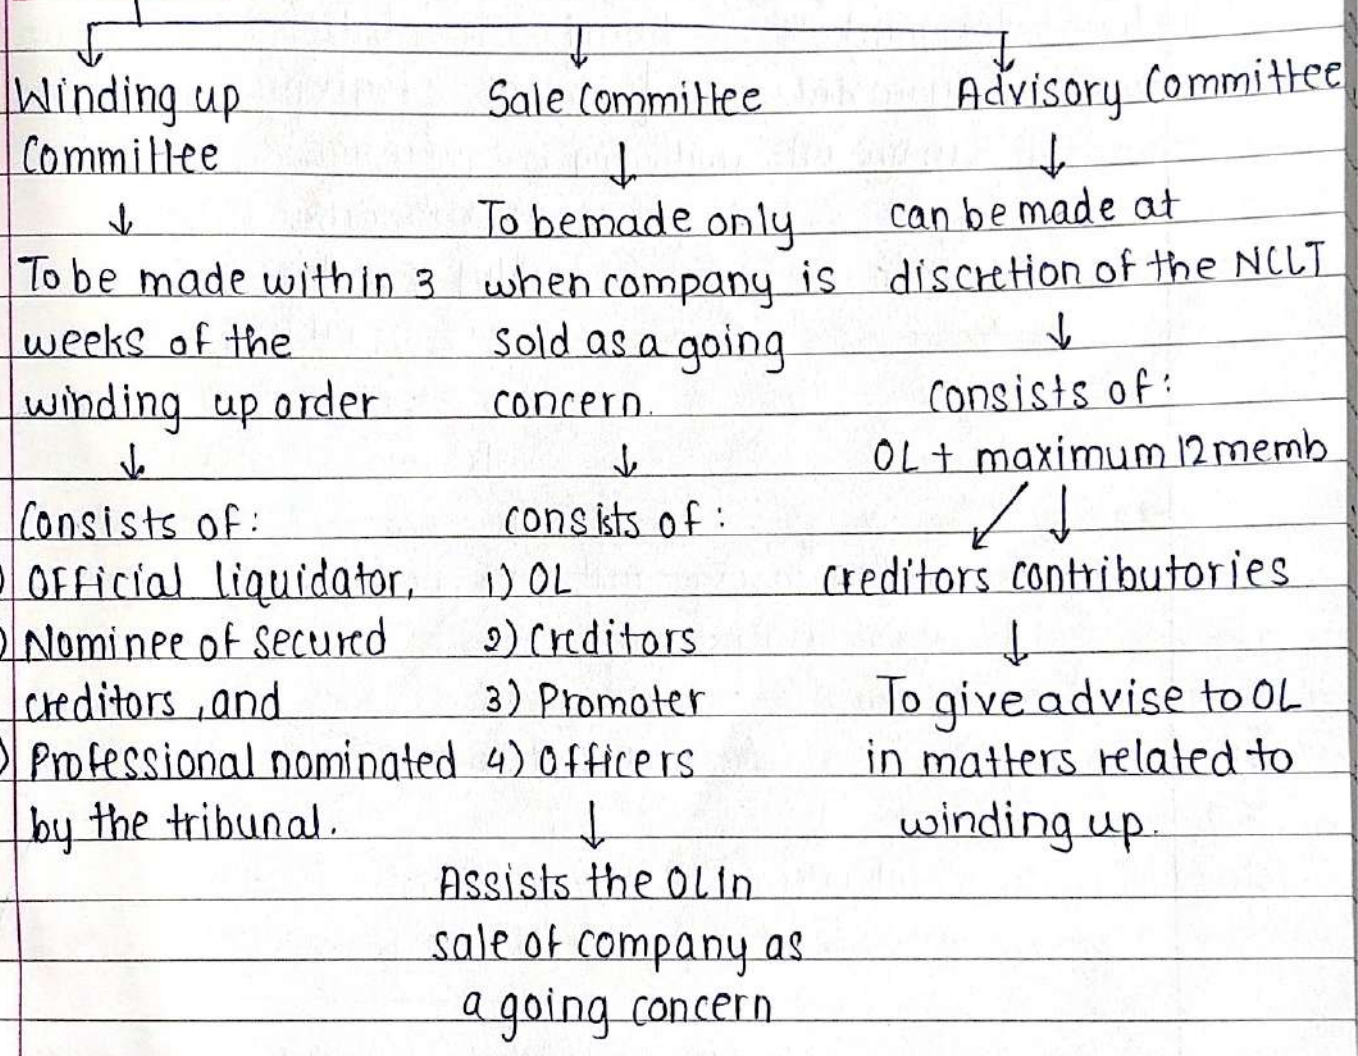 Winding up
Committee
↓
To be made within 3
weeks of the
winding up order
↓
Consists of:
Official liquidator,
Nominee of secured
creditors, and
Professional nominated
by the tribunal.
Sale Committee
↓
To be made only
when company is
sold as a going
concern.
↓
consists of:
1) OL
2) Creditors
3) Promoter
4) Officers
↓
Assists the OL in
sale of company as
a going concern
Advisory Committee
↓
can be made at
discretion of the NCLT
↓
Consists of:
OL + maximum 12 memb
↙ ↓
creditors contributories
↓
To give advise to OL
in matters related to
winding up.